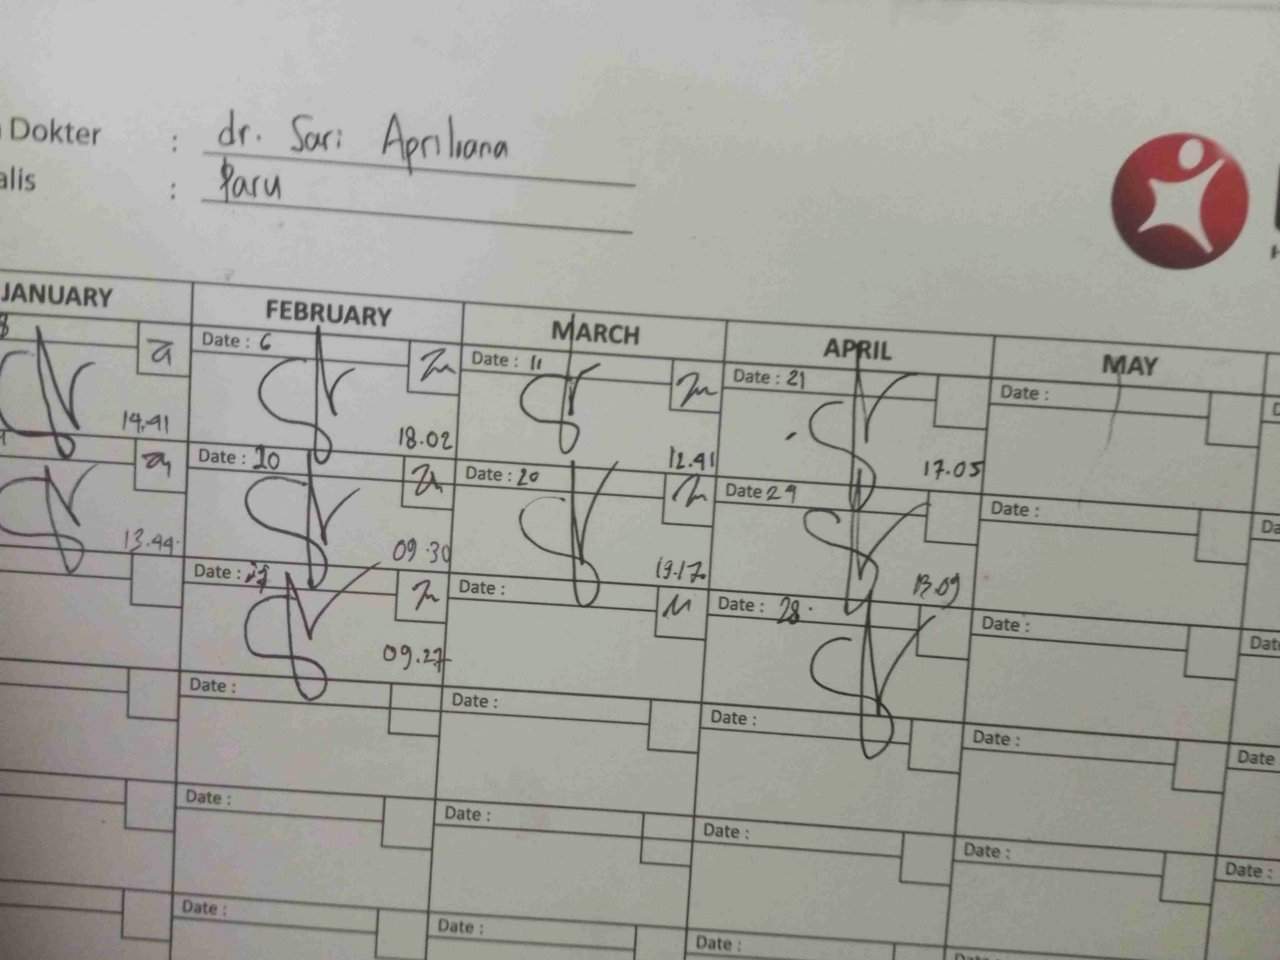 Dokter : dr. Sari Apriliana
alis : Paru
JANUARY FEBRUARY MARCH APRIL MAY
8 Date : 6 Date : 11 Date : 21 Date :
14.41 18.02 12.41 17.05
Date : 20 Date : 20 Date 24 Date :
13.44 09.30 19.17 13.09
Date : 27 Date : Date : 28 Date : Date
09.27
Date : Date : Date : Date : Date
Date : Date : Date : Date : Date :
Date : Date : Date :